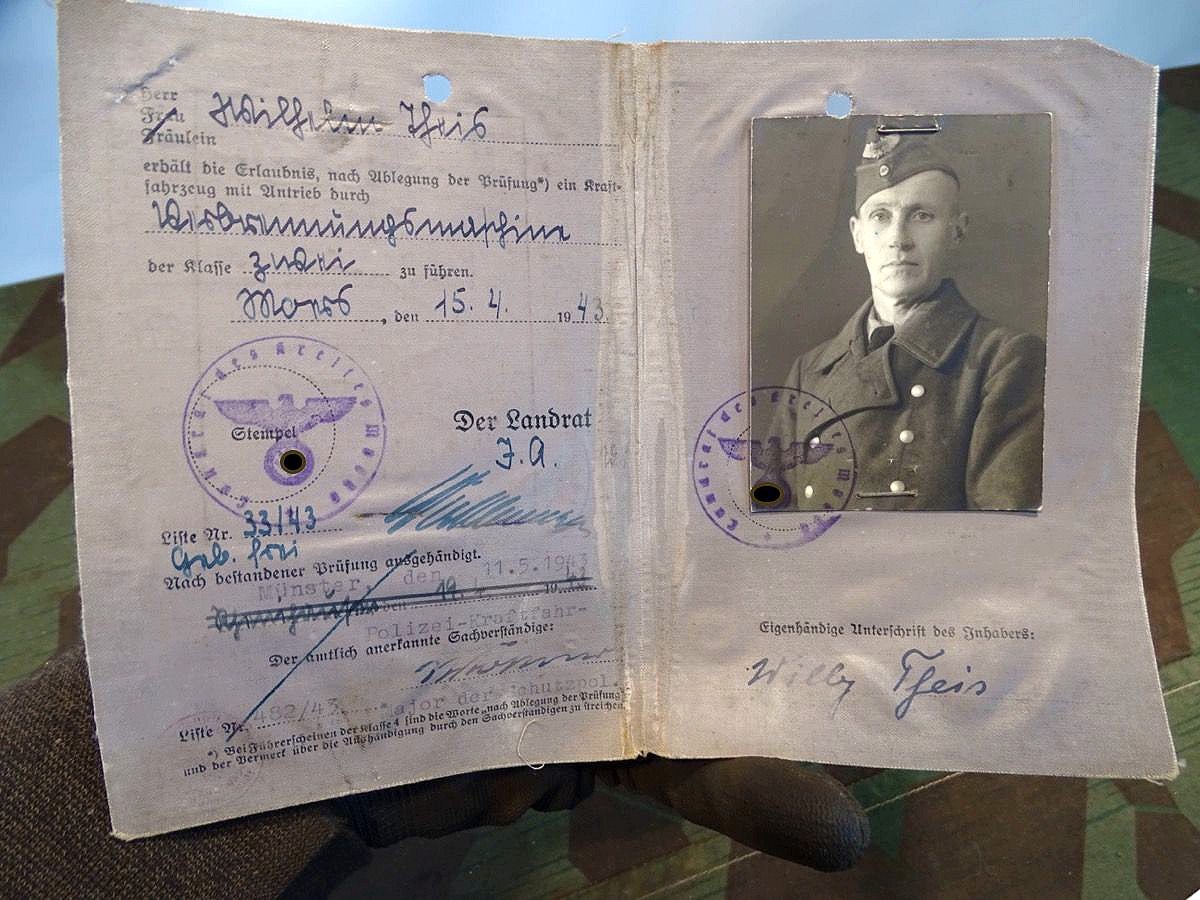 Herr
Frau Wilhelm Theis
Fräulein
erhält die Erlaubnis, nach Ablegung der Prüfung*) ein Kraft-
fahrzeug mit Antrieb durch
Verbrennungsmaschine
der Klasse zwei zu führen.
Moers, den 15. 4. 1943.
Stempel
Der Landrat
J. A.
Liste Nr. 33/43
Geb. frei
Nach bestandener Prüfung ausgehändigt.
Münster, den 11.5.1943
Polizei-Kraftfahr-
Der amtlich anerkannte Sachverständige:
Major der Schutzpol.
Liste Nr. 482/43
*) Bei Führerscheinen der Klasse 4 sind die Worte „nach Ablegung der Prüfung"
und der Vermerk über die Aushändigung durch den Sachverständigen zu streichen.
des Kreises Moers
des Kreises Moers
Eigenhändige Unterschrift des Inhabers:
Willy Theis